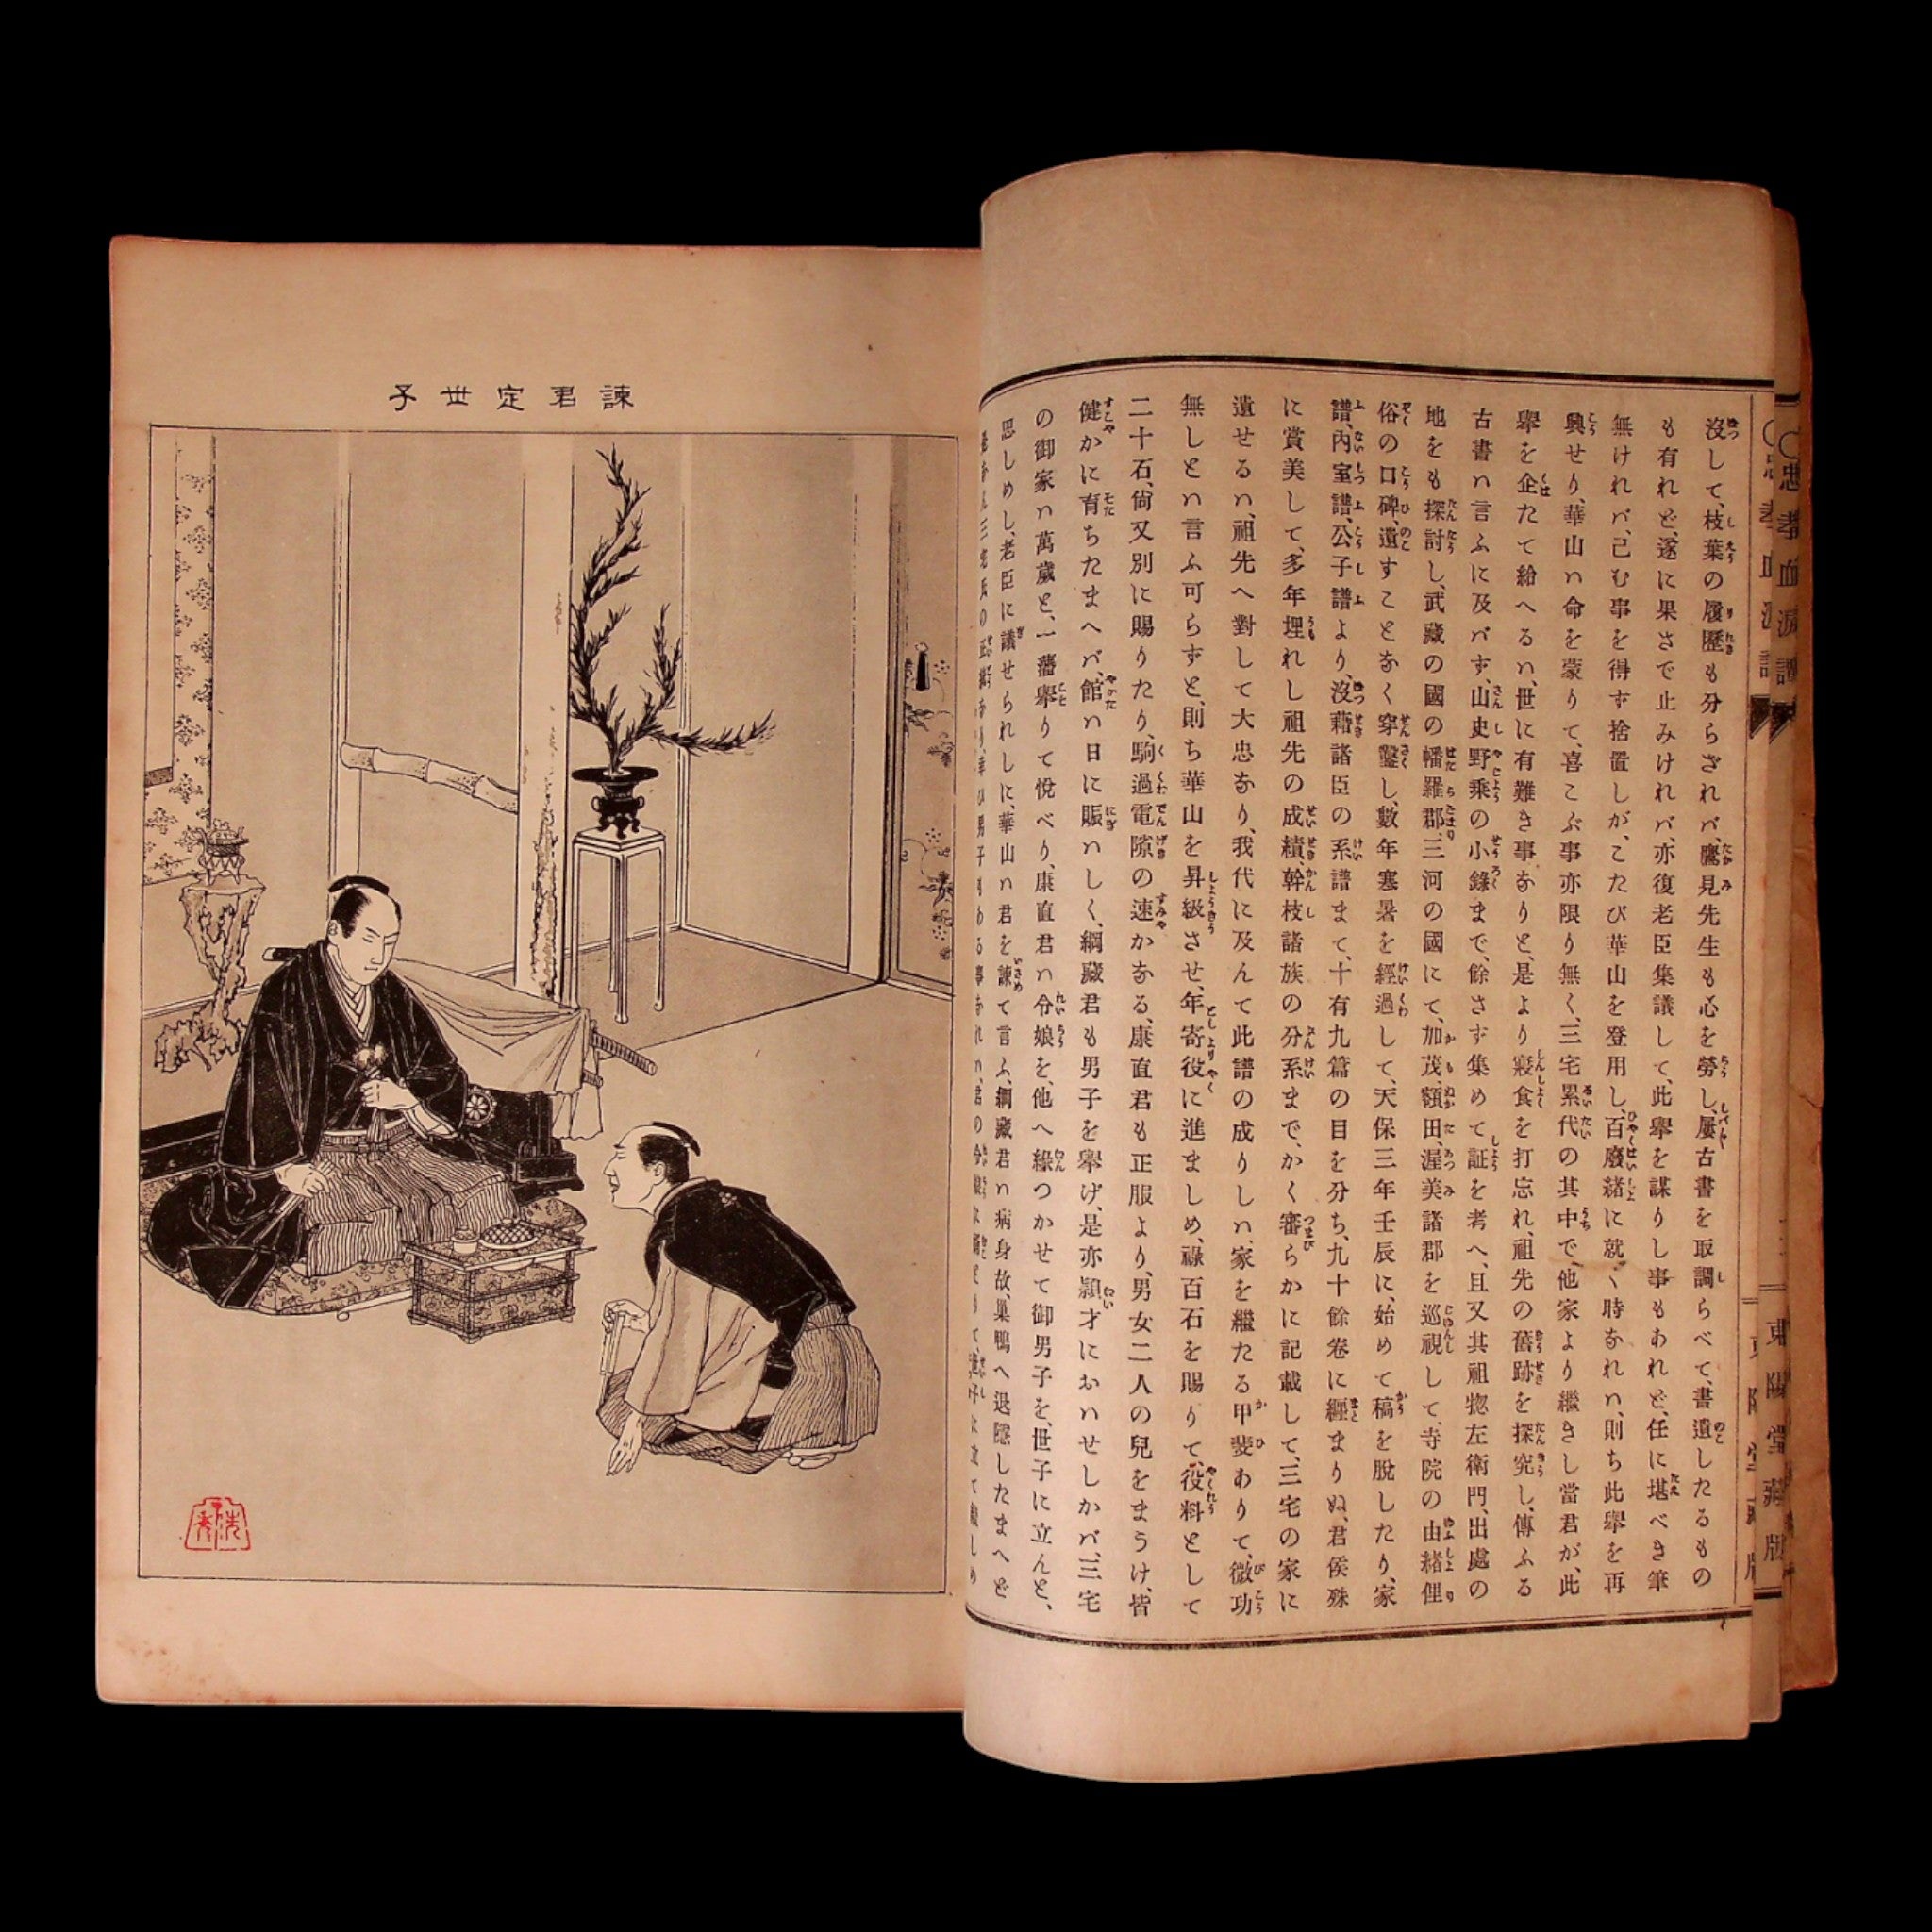 忠孝血涙譚
東陽堂藏版
沒して、枝葉の履歷も分らざれバ、鷹見先生も心を勞し、屢古書を取調らべて、書遺したるもの
も有れど、遂に果さで止みけれバ、亦復老臣集議して、此擧を謀りし事もあれど、任に堪べき筆
無けれバ、己む事を得ず捨置しが、こたび華山を登用し、百廢緒に就く時なれハ、則ち此擧を再
興せり、華山ハ命を蒙りて、喜こぶ事亦限り無く、三宅累代の其中で、他家より繼きし當君が、此
擧を企たて給へるハ、世に有難き事なりと、是より寢食を打忘れ、祖先の舊跡を探究し、傳ふる
古書ハ言ふに及バず、山史野乘の小錄まで、餘さず集めて証を考へ、且又其祖惣左衛門、出處の
地をも探討し、武藏の國の幡羅郡、三河の國にて、加茂、額田、渥美諸郡を巡視して、寺院の由緒俚
俗の口碑、遺すことなく穿鑿し、數年寒暑を經過して、天保三年壬辰に、始めて稿を脫したり、家
譜、內室譜、公子譜より、沒藉諸臣の系譜まて、十有九篇の目を分ち、九十餘卷に纒まりぬ、君侯殊
に賞美して、多年埋れし祖先の成績、幹枝諸族の分系まで、かく審らかに記載して、三宅の家に
遺せるハ、祖先へ對して大忠なり、我代に及んて此譜の成りしハ、家を繼たる甲斐ありて、微功
無しとハ言ふ可らずと、則ち華山を昇級させ、年寄役に進ましめ、祿百石を賜りて、役料として
二十石、尙又別に賜りたり、駒過電隙の速かなる、康直君も正服より、男女二人の兒をまうけ、皆
健かに育ちたまへバ、館ハ日に賑ハしく、綱藏君も男子を擧げ、是亦穎才におハせしかバ、三宅
の御家ハ萬歲と、一藩擧りて悅べり、康直君ハ令娘を、他へ緣つかせて御男子を、世子に立んと、
思しめし、老臣に議せられしに、華山ハ君を諫て言ふ、綱藏君ハ病身故、巢鴨へ退隱したまへど
諫君定世子